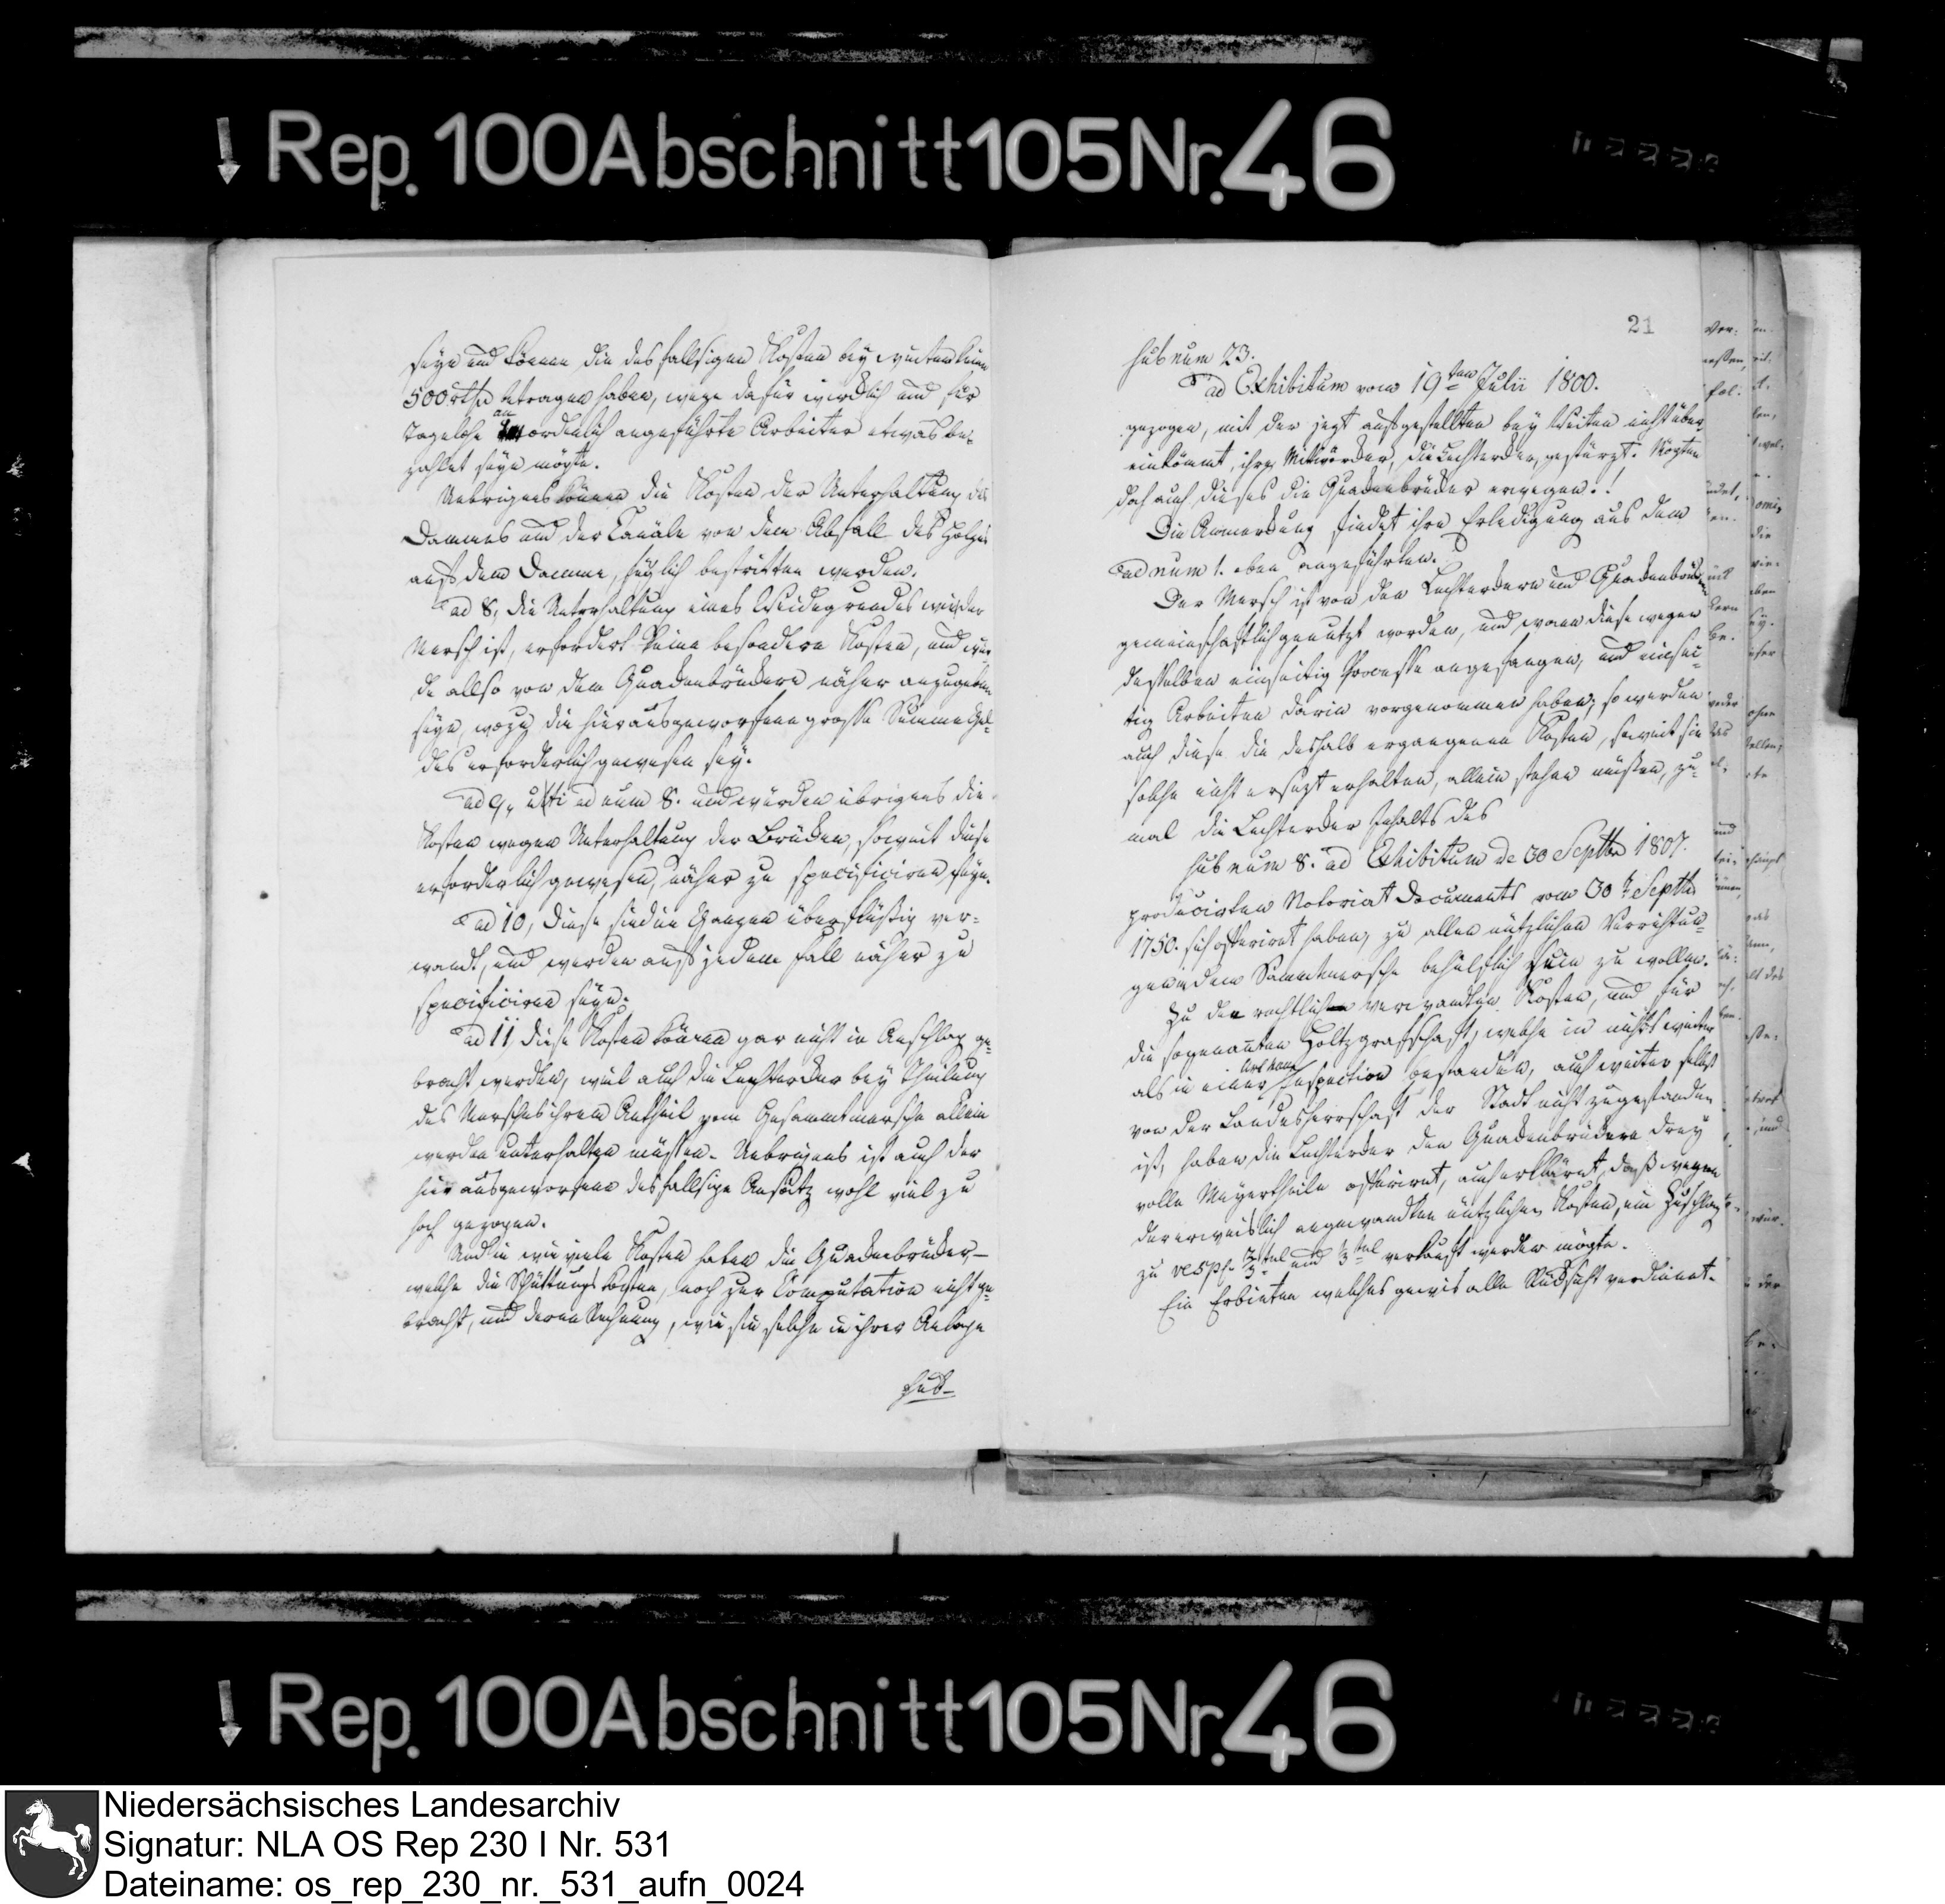 Rep. 100 Abschnitt 105 Nr. 46
seyn und können die desfallsigen Kosten bey weiten keine
500 rthlr betragen haben, wenn dafür würcklich und für
Tagelohn an ordentlich angeführte Arbeiter etwas be-
zahlet seyn mögte.
Uebrigens können die Kosten der Unterhaltung des
Dammes und der Canäle von dem Abfall des Holzes
auf dem Damme, füglich bestritten werden.
ad 8, die Unterhaltung eines Weidegrundes wie der
Mersch ist, erfordert keine besondere Kosten, und wür-
de allso von den Quackenbrückern näher anzugeben
seyn, wozu die hier ausgeworfene grosse Summe Gel-
des erforderlich gewesen sey.
ad 9, uti ad num 8. und würden übrigens die
Kosten wegen Unterhaltung der Brücken, soweit diese
erforderlich gewesen, näher zu specificiren seyn.
ad 10, diese sind im Ganzen überflüßig ver-
wandt, und werden auf jedem Fall näher zu
specificiren seyn.
ad 11, diese Kosten können gar nicht in Anschlag ge-
bracht werden, weil auch die Lechterker bey Theilung
des Mersches ihren Antheil vom Gesammtmersche allein
werden unterhalten müssen. Uebrigens ist auch der
hier ausgeworfene desfallsige Ansatz wohl viel zu
hoch gezogen.
Und in wie viele Kosten haben die Quackenbrücker,
welche die Schüttungs Kosten, noch zur Computation nicht ge-
bracht, und deren Rechnung, wie sie solche in ihrer Anlage
sub
21
sub num 23.
ad Exhibitum vom 19ten Julii 1800.
gezogen, mit der jezt aufgestellten bey Weiten nicht über-
einkömmt, ihre Mitwörker, die Lechterker, gestürzt. Mögten
doch auch dieses die Quackenbrücker erwegen!
Die Anmerkung findet ihre Erledigung aus dem
ad num 1. oben angeführten.
Der Mersch ist von den Lechterkern und Quackenbrückern
gemeinschaftlich genutzt worden, und wann diese wegen
desselben einseitig Processe angefangen, und einsei-
tig Arbeiten darin vorgenommen haben, so werden
auch diese die deshalb ergangenen Kosten, soweit sie
solche nicht ersezt erhalten, allein stehen müssen, zu-
mal die Lechterker Inhalts des
sub num 8. ad Exhibitum de 30 Septbr 1807.
producirten Notariat Documents vom 30t Septbr
1750. sich offerirt haben, zu allen nützlichen Verrichtun-
gen in dem Sammtmersche behülflich sein zu wollen.
Zu den rechtlich verwandten Kosten, und für
die sogenannten Holtzgrafschaft, welche in nichts weiter
als in einer Inspection bestanden, auch weiter selbst
von der Landesherrschaft der Stadt nicht zugestanden
ist, haben die Lechterker den Quackenbrückern drey
volle Meyertheile offerirt, auch erklärt, daß wegen
der erweislich angewandten nützlichen Kosten, ein Zuschlag
zu resp. 2/3tel und 1/3tel verkauft werden mögte.
Ein Erbieten welches gewis alle Rücksicht verdienet.
Rep. 100 Abschnitt 105 Nr. 46
Niedersächsisches Landesarchiv
Signatur: NLA OS Rep 230 I Nr. 531
Dateiname: os_rep_230_nr._531_aufn_0024